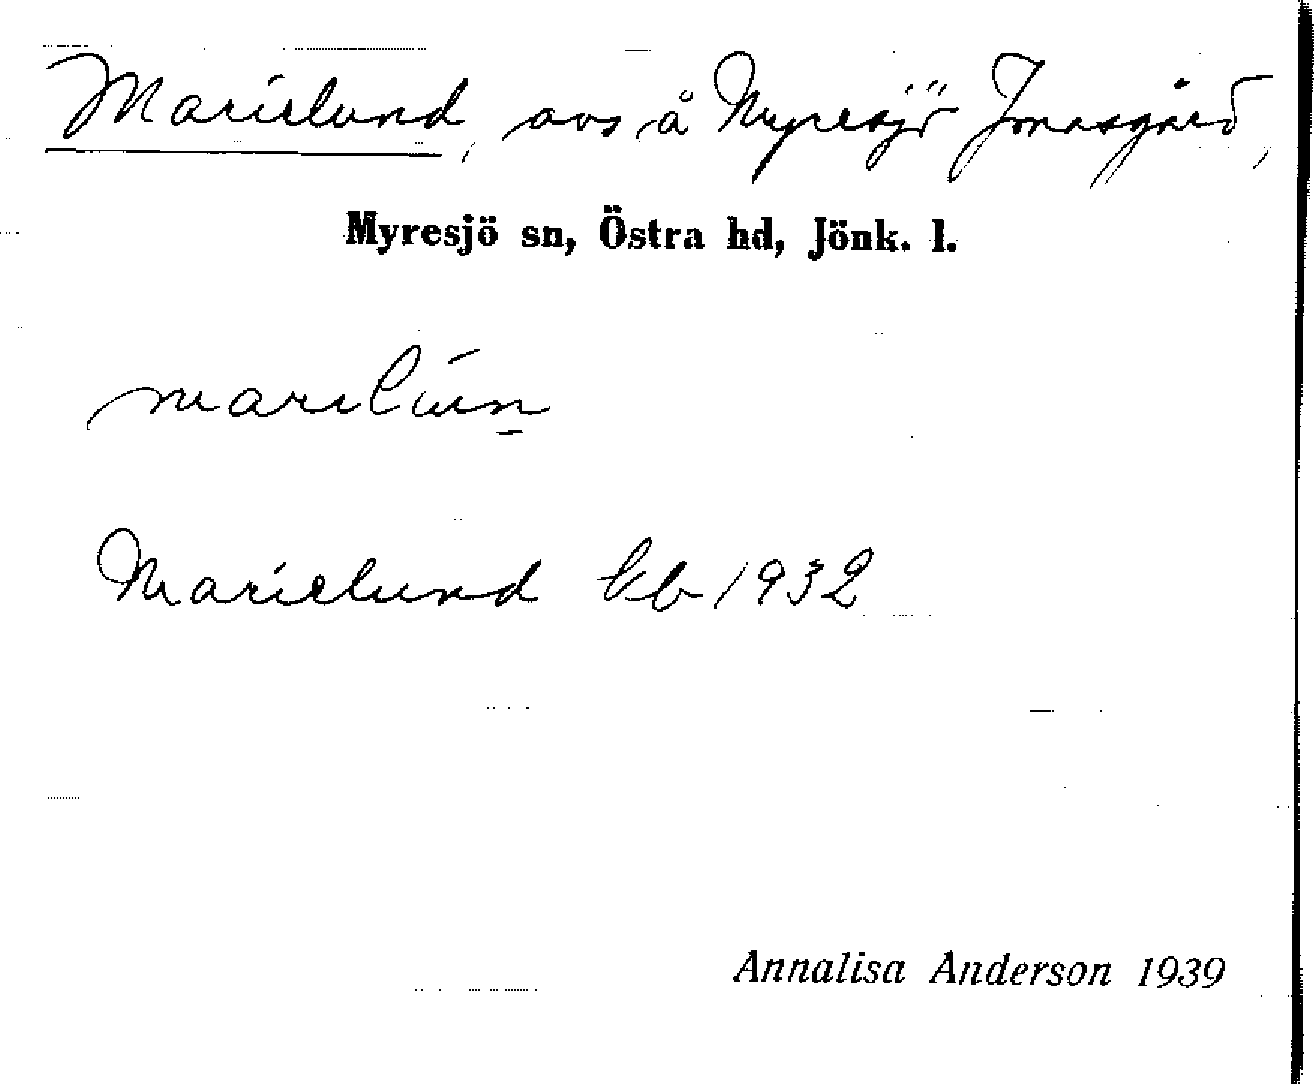 Marielund, avs å Myresjö Jonasgård,
Myresjö sn, Östra hd, Jönk. l.
Marielund kb 1932
Annalisa Anderson 1939